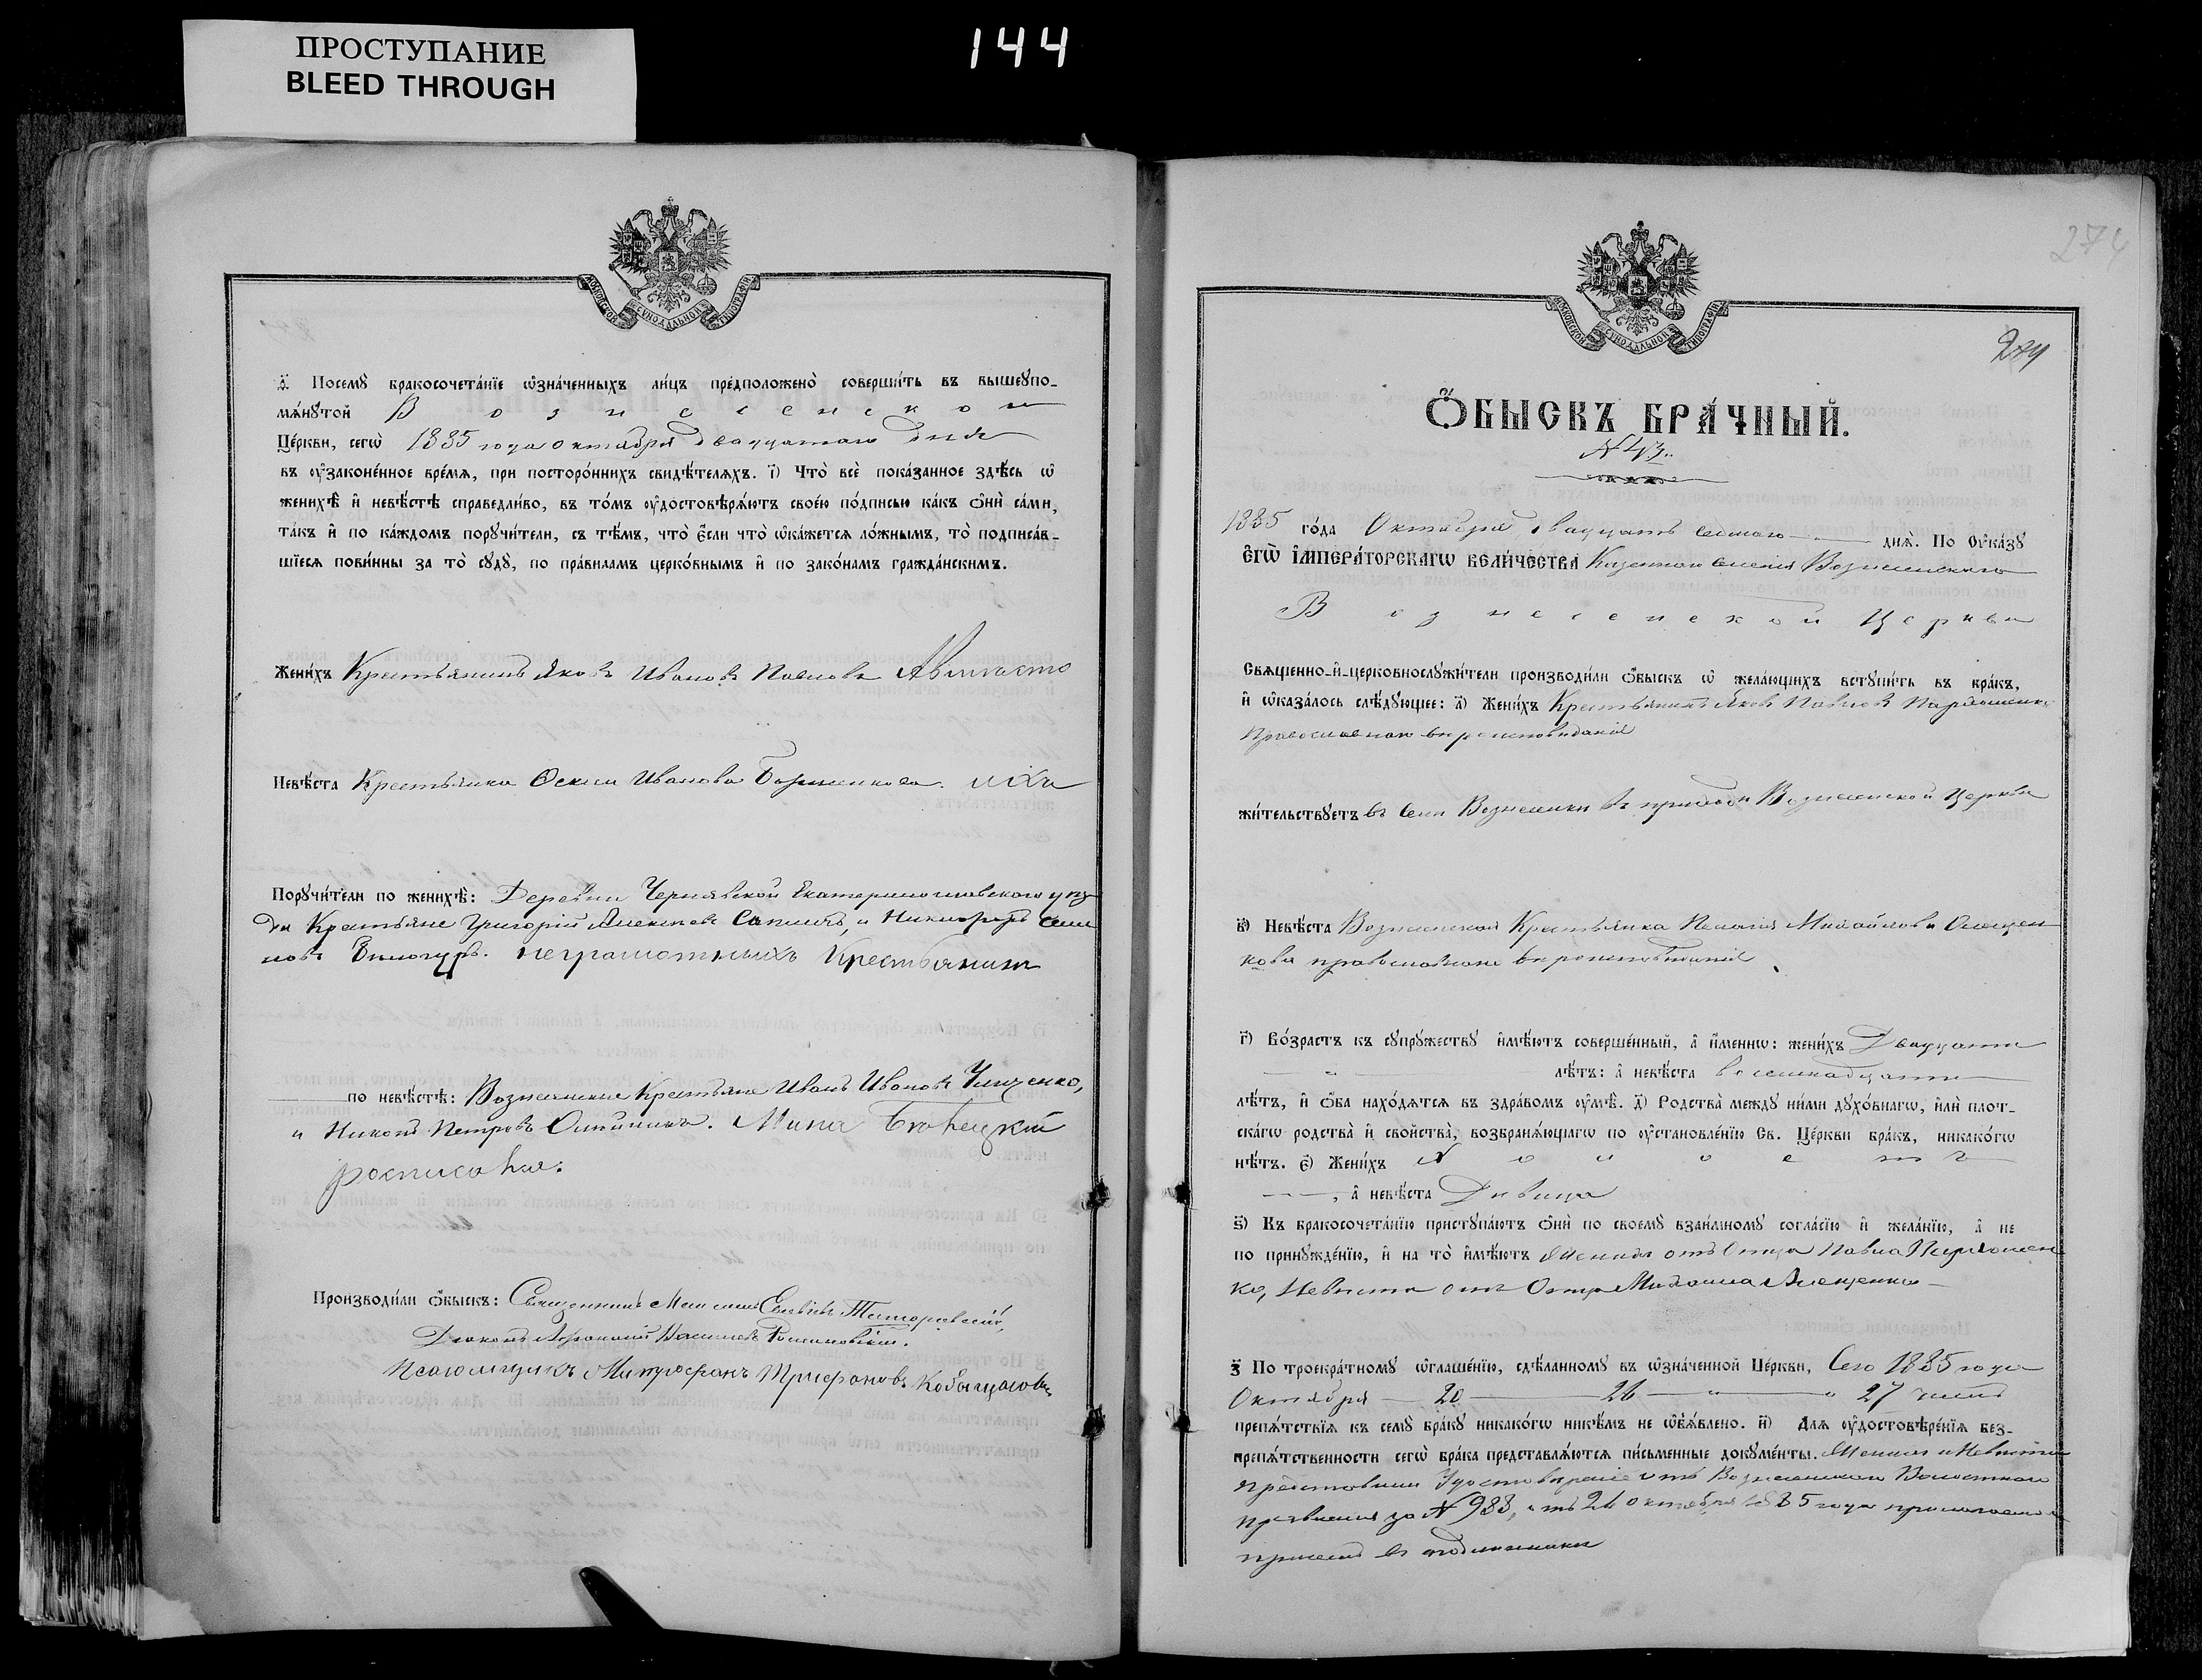 ПРОСТУПАНИЕ
BLEED THROUGH
144
МОСКОВСКОЙ СѴНОДАЛЬНОЙ ТИПОГРАФІИ
Посемꙋ бракосочетáнїе ѡ҆знáченныхъ ли́цъ предположенò соверши́ть въ вышеꙋпо-
мѧ́нꙋтой Вознесенской
Цéркви, сегѡ̀ 1885 года октября двадцатаго дня
въ ᲂу҆законéнное врéмѧ, при посторóннихъ свидѣ́телѧхъ. і҃) Чтò всѐ покáзанное здѣ́сь ѡ҆
женихѣ̀ и҆ невѣ́стѣ справедли́во, въ тóмъ ᲂу҆достовѣрѧ́ютъ своéю пóдписью кáкъ ѻ҆нѝ сáми,
тáкъ и҆ по кáждомъ порꙋчи́тели, съ тѣ́мъ, чтò є҆́сли чтò ѡ҆кáжетсѧ лóжнымъ, тò подписáв-
шїесѧ пови́нны за тò сꙋдꙋ̀, по прáвиламъ церкóвнымъ и҆ по закóнамъ граждáнскимъ.
Жени́хъ Крестьянинъ Яковъ Ивановъ Павловъ
Невѣ́ста Крестьянка Ивановa
Порꙋчи́тели по женихѣ̀: Деревни Чернявской Екатеринославского уѣз-
да Крестьяне Григорій Алексѣевъ и Никифоръ Семе-
новъ неграмотныхъ Крестьянинъ
по невѣ́стѣ: Вознесенские Крестьяне Иванъ Ивановъ
и Никонъ Петровъ Мина
росписався.
Производи́ли ѻ҆́быскъ: Священникъ
Діаконъ
Псаломщикъ Митрофанъ Трифановъ
274
274
МОСКОВСКОЙ СѴНОДАЛЬНОЙ ТИПОГРАФІИ
Ѻ҆́БЫСКЪ БРÁЧНЫЙ.
N 43.
1885 гóда Октября двадцать седмого днѧ̀. По Оу҆кáзꙋ
Є҆гѡ̀ І҆мперáторскагѡ Вели́чества Казенного селенія Вознесенского
Вознесенской Церкви
Свѧщенно-и҆-церковнослꙋжи́тели производи́ли ѻ҆́быскъ ѡ҆ желáющихъ встꙋпи́ть въ брáкъ,
и҆ ѡ҆казáлось слѣ́дꙋющее: а҃) Жени́хъ Крестьянинъ Яковъ Павловъ Пархоменко
Православнаго вѣроисповѣданія
жи́тельствꙋетъ въ Селѣ Вознесенки въ приходѣ Вознесенской Церкви
в҃) Невѣ́ста Вознесенская Крестьянка Пелагія Михайлова
кова православнаго вѣроисповѣданія
г҃) Вóзрастъ къ сꙋпрꙋ́жествꙋ и҆мѣ́ютъ совершéнный, а҆ и҆́меннѡ: жени́хъ Двадцати
лѣ́тъ: а҆ невѣ́ста восемнадцати
лѣ́тъ, и҆ ѻ҆́ба нахóдѧтсѧ въ здрáвомъ ᲂу҆мѣ̀. д҃) Родствà междꙋ ни́ми дꙋхóвнагѡ, и҆лѝ плот-
скáгѡ родствà и҆ свойствà, возбранѧ́ющагѡ по ᲂу҆становлéнїю Св. Цéркви брáкъ, никакóгѡ
нѣ́тъ. є҃) Жени́хъ Холостъ
, а҆ невѣ́ста Дѣвица
ѕ҃) Къ бракосочетáнїю пристꙋпáютъ ѻ҆нѝ по своемꙋ̀ взаи́мномꙋ соглáсїю и҆ желáнїю, а҆ не
по принꙋждéнїю, и҆ на тò и҆мѣ́ютъ Женихъ отъ Отца Павла Пархомен-
ко, Невѣста отъ Отца Михаила
з҃ По троекрáтномꙋ ѡ҆глашéнїю, сдѣ́ланномꙋ въ ѡ҆знáченной Цéркви, Сего 1885 года
Октября 20 26 27 чиселъ
препѧ́тствїѧ къ семꙋ̀ брáкꙋ никакóгѡ никѣ́мъ не ѡ҆б̾ѧ́влено. и҃) Длѧ ᲂу҆достовѣрéнїѧ без-
препѧ́тственности сегѡ̀ брáка представлѧ́ютсѧ пи́сьменные докꙋмéнты. Женихъ и Невѣста
представили Удостовѣреніе отъ Вознесенского Волостного
Правленія за N 988, отъ 26 октября 1885 года